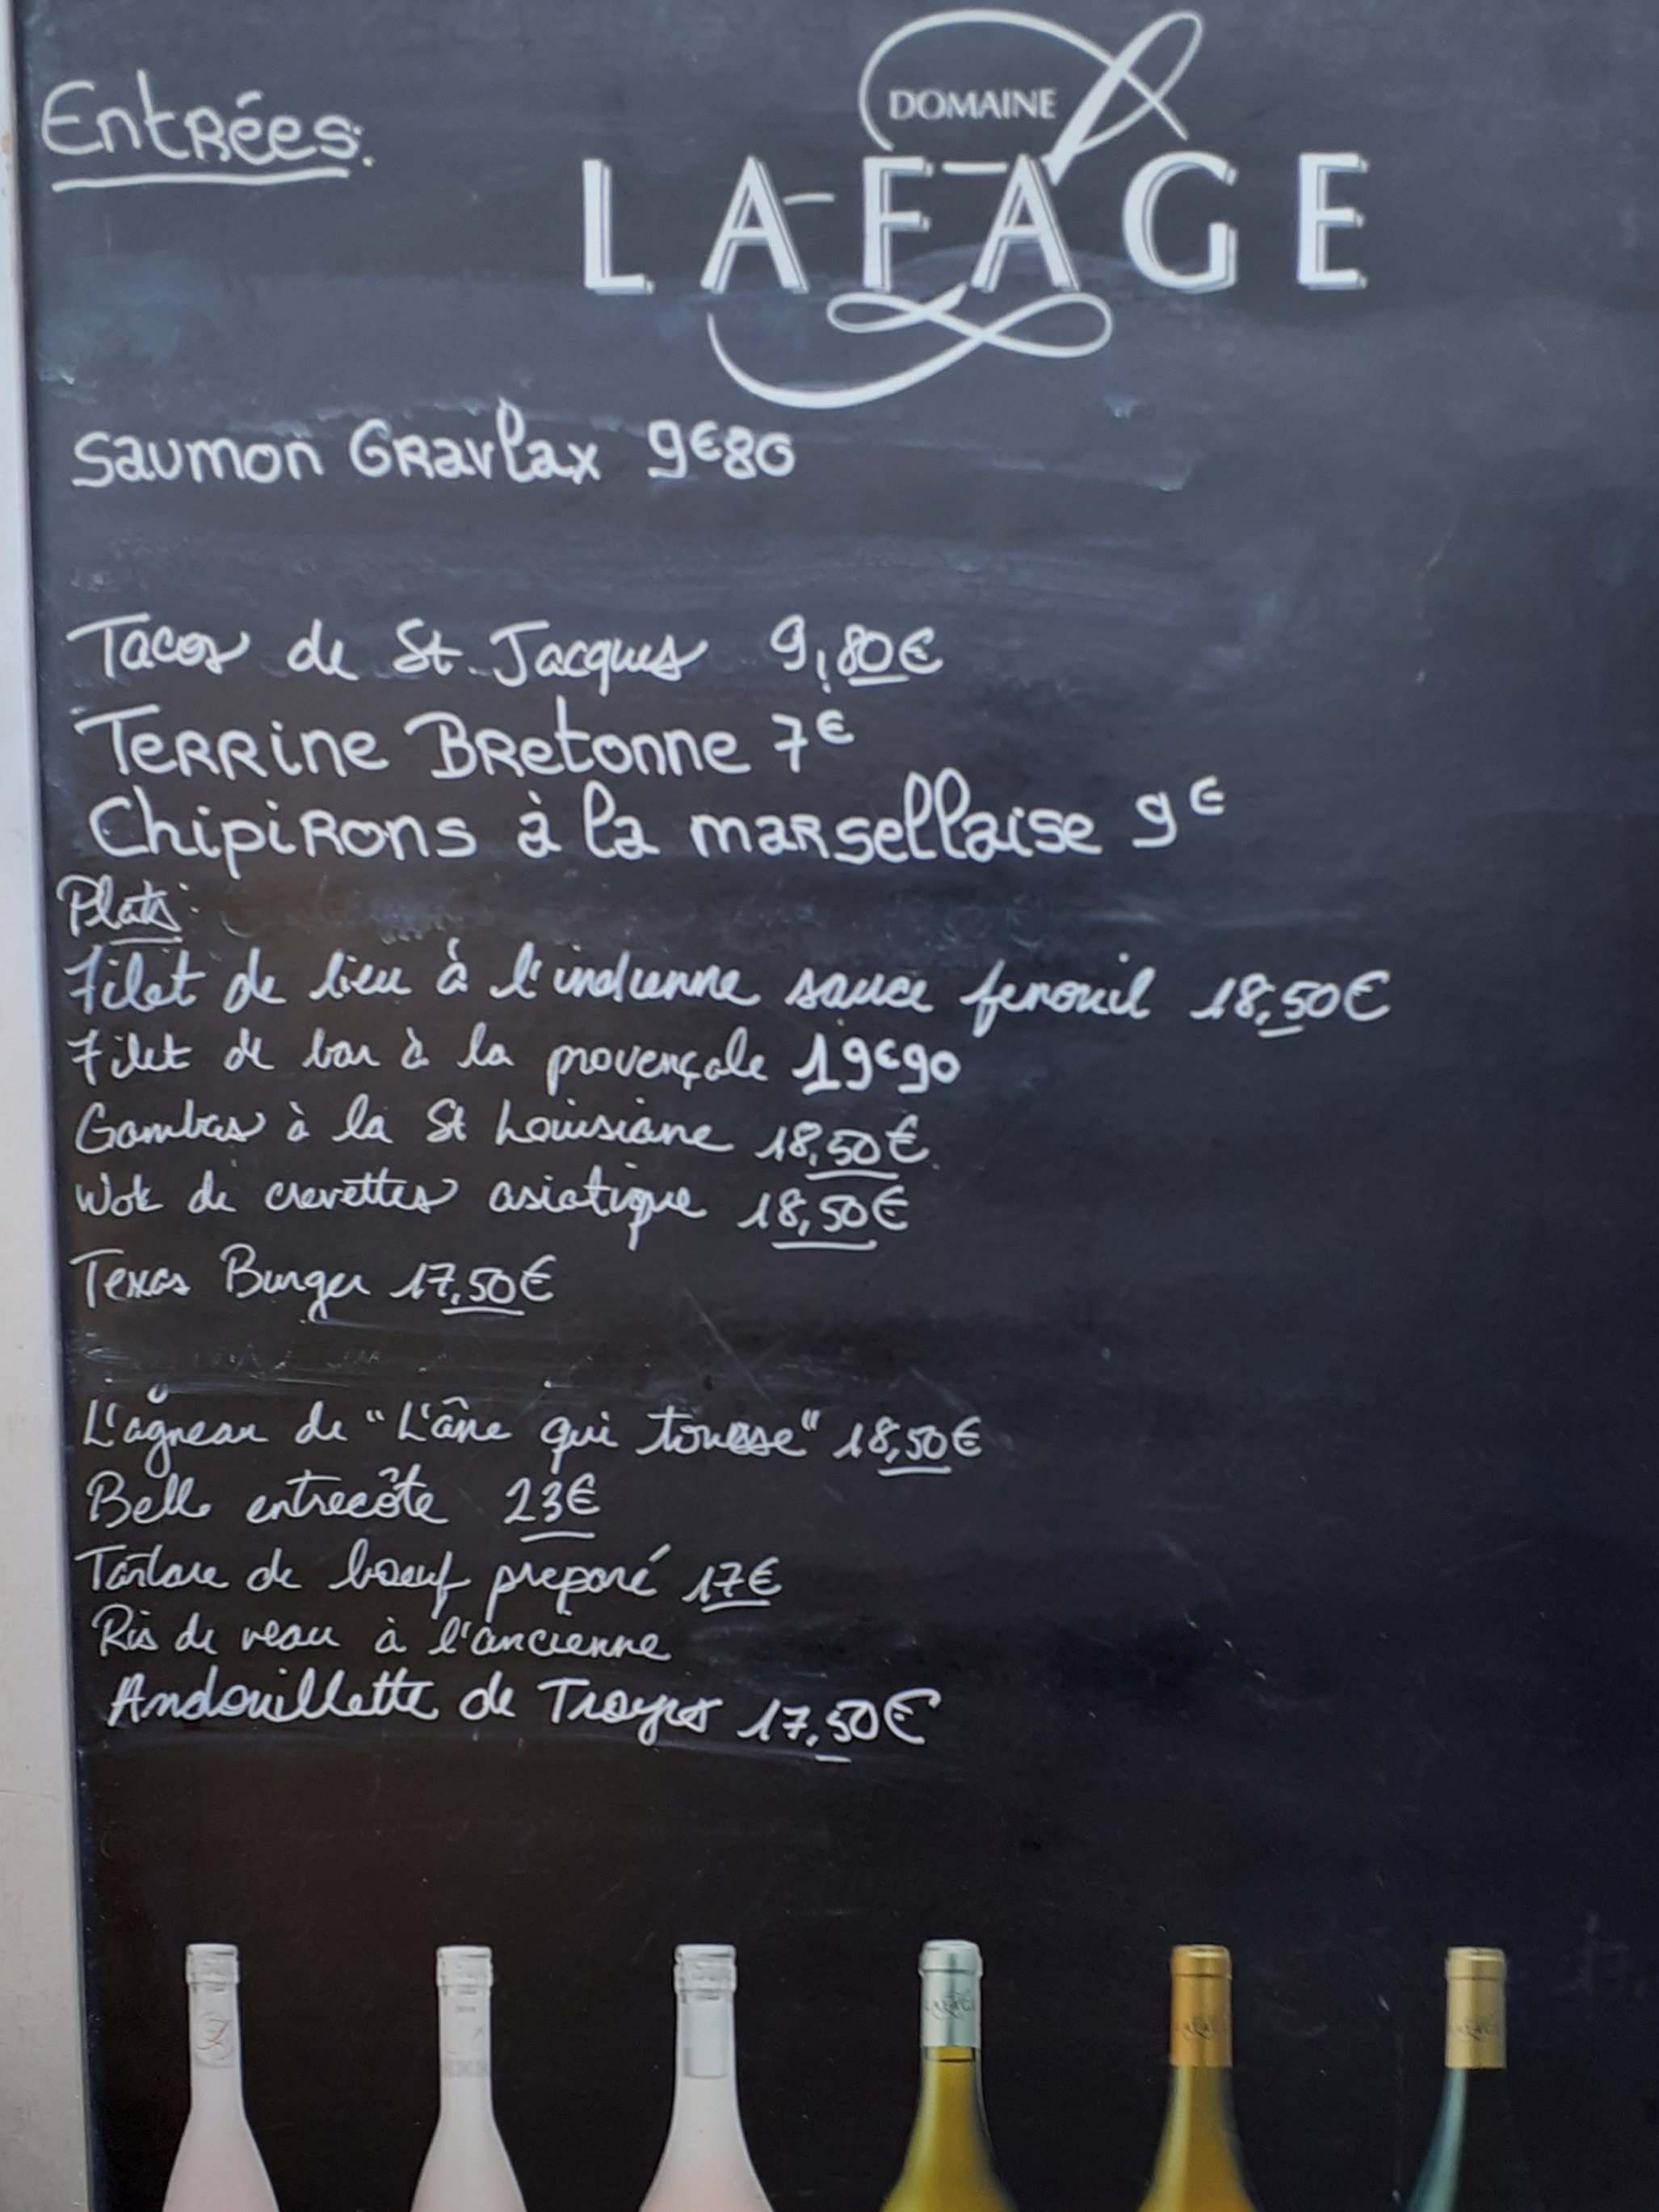 Entrées:
DOMAINE
LAFAGE
Saumon Gravlax 9€80
Tacos de St. Jacques 9,80€
Terrine Bretonne 7€
Chipirons à la marsellaise 9€
Plats:
Filet de lieu à l'indienne sauce fenouil 18,50€
Filet de bar à la provençale 19€90
Gambas à la St Louisiane 18,50€
Wok de crevettes asiatique 18,50€
Texas Burger 17,50€
L'agneau de "L'âne qui tousse" 18,50€
Belle entrecôte 23€
Tartare de boeuf preparé 17€
Ris de veau à l'ancienne
Andouillette de Troyes 17,50€
LAFAGE
LAFAGE
LAFAGE